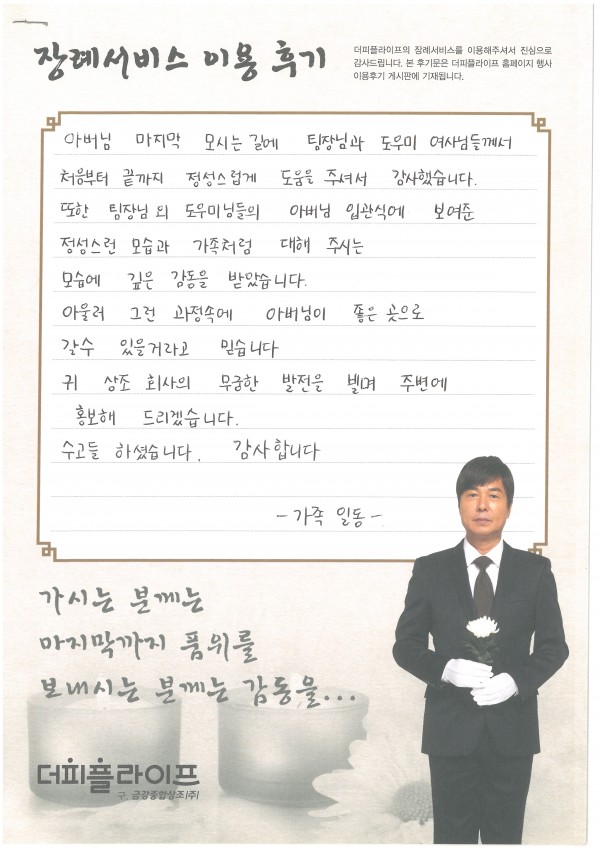 장례서비스 이용 후기
더피플라이프의 장례서비스를 이용해주셔서 진심으로
감사드립니다. 본 후기문은 더피플라이프 홈페이지 행사
이용후기 게시판에 기재됩니다.
아버님 마지막 모시는 길에 팀장님과 도우미 여사님들께서
처음부터 끝까지 정성스럽게 도움을 주셔서 감사했습니다.
또한 팀장님 외 도우미님들의 아버님 입관식에 보여준
정성스런 모습과 가족처럼 대해 주시는
모습에 깊은 감동을 받았습니다.
아울러 그런 과정속에 아버님이 좋은 곳으로
갈수 있을거라고 믿습니다
귀 상조 회사의 무궁한 발전을 빌며 주변에
홍보해 드리겠습니다.
수고들 하셨습니다. 감사합니다
- 가족 일동 -
가시는 분께는
마지막까지 품위를
보내시는 분께는 감동을...
더피플라이프
구. 금강종합상조(주)